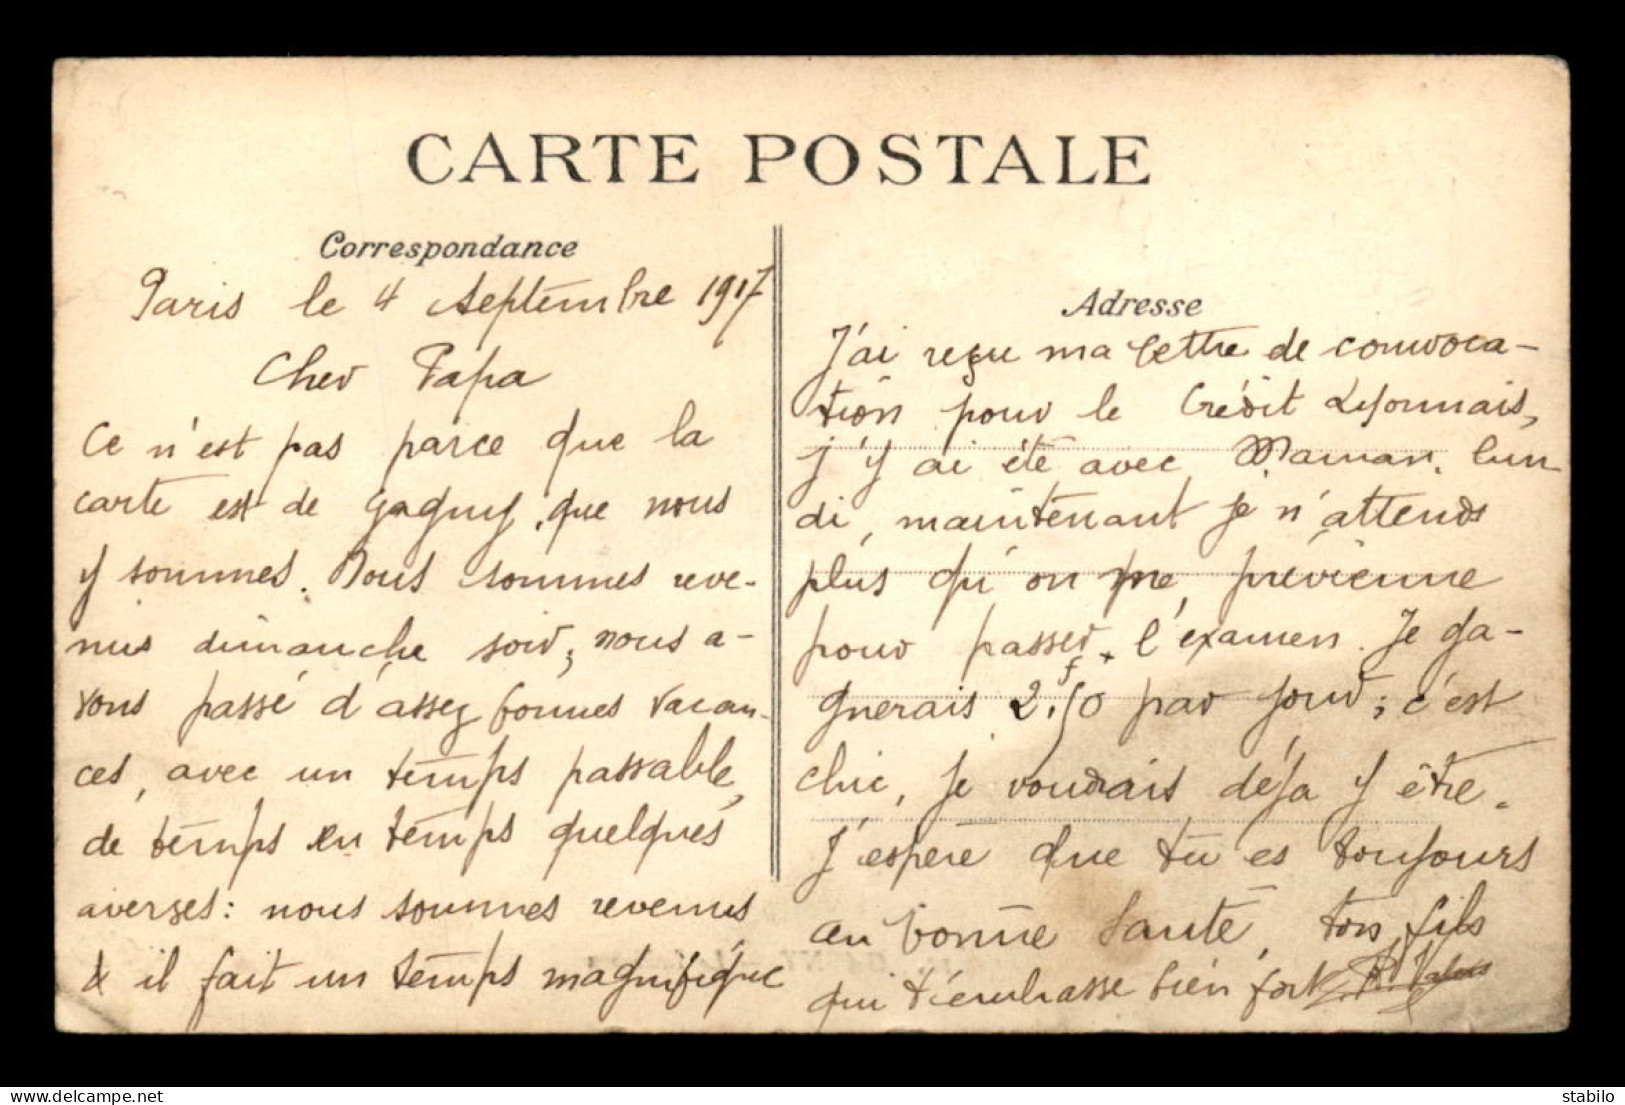 CARTE POSTALE
Correspondance
Paris le 4 Septembre 1917
Cher Papa
Ce n'est pas parce que la
carte est de Gagny, que nous
y sommes. Nous sommes reve-
nus dimanche soir; nous a-
vons passé d'assez bonnes vacan-
ces, avec un temps passable,
de temps en temps quelques
averses: nous sommes revenus
& il fait un temps magnifique
Adresse
J'ai reçu ma lettre de convoca-
tion pour le Crédit Lyonnais,
j'y ai été avec Maman lun-
di, maintenant je n'attends
plus qu'on me prévienne
pour passer l'examen. Je ga-
gnerais 2f,50 par jour; c'est
chic, je voudrais déja y être.
J'espère que tu es toujours
en bonne santé, ton fils
qui t'embrasse bien fort
www.delcampe.net
stabilo